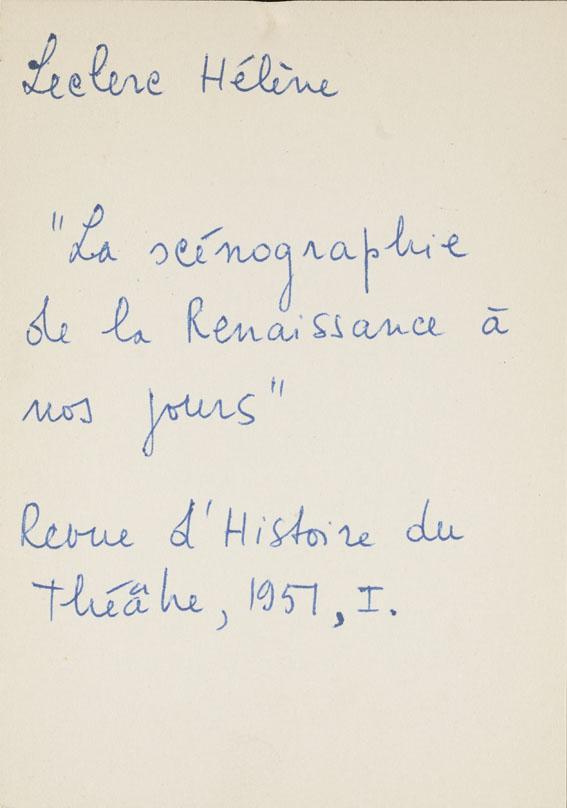 Leclerc Hélène
"La scénographie
de la Renaissance à
nos jours"
Revue d'Histoire du
Théâtre, 1951, I.